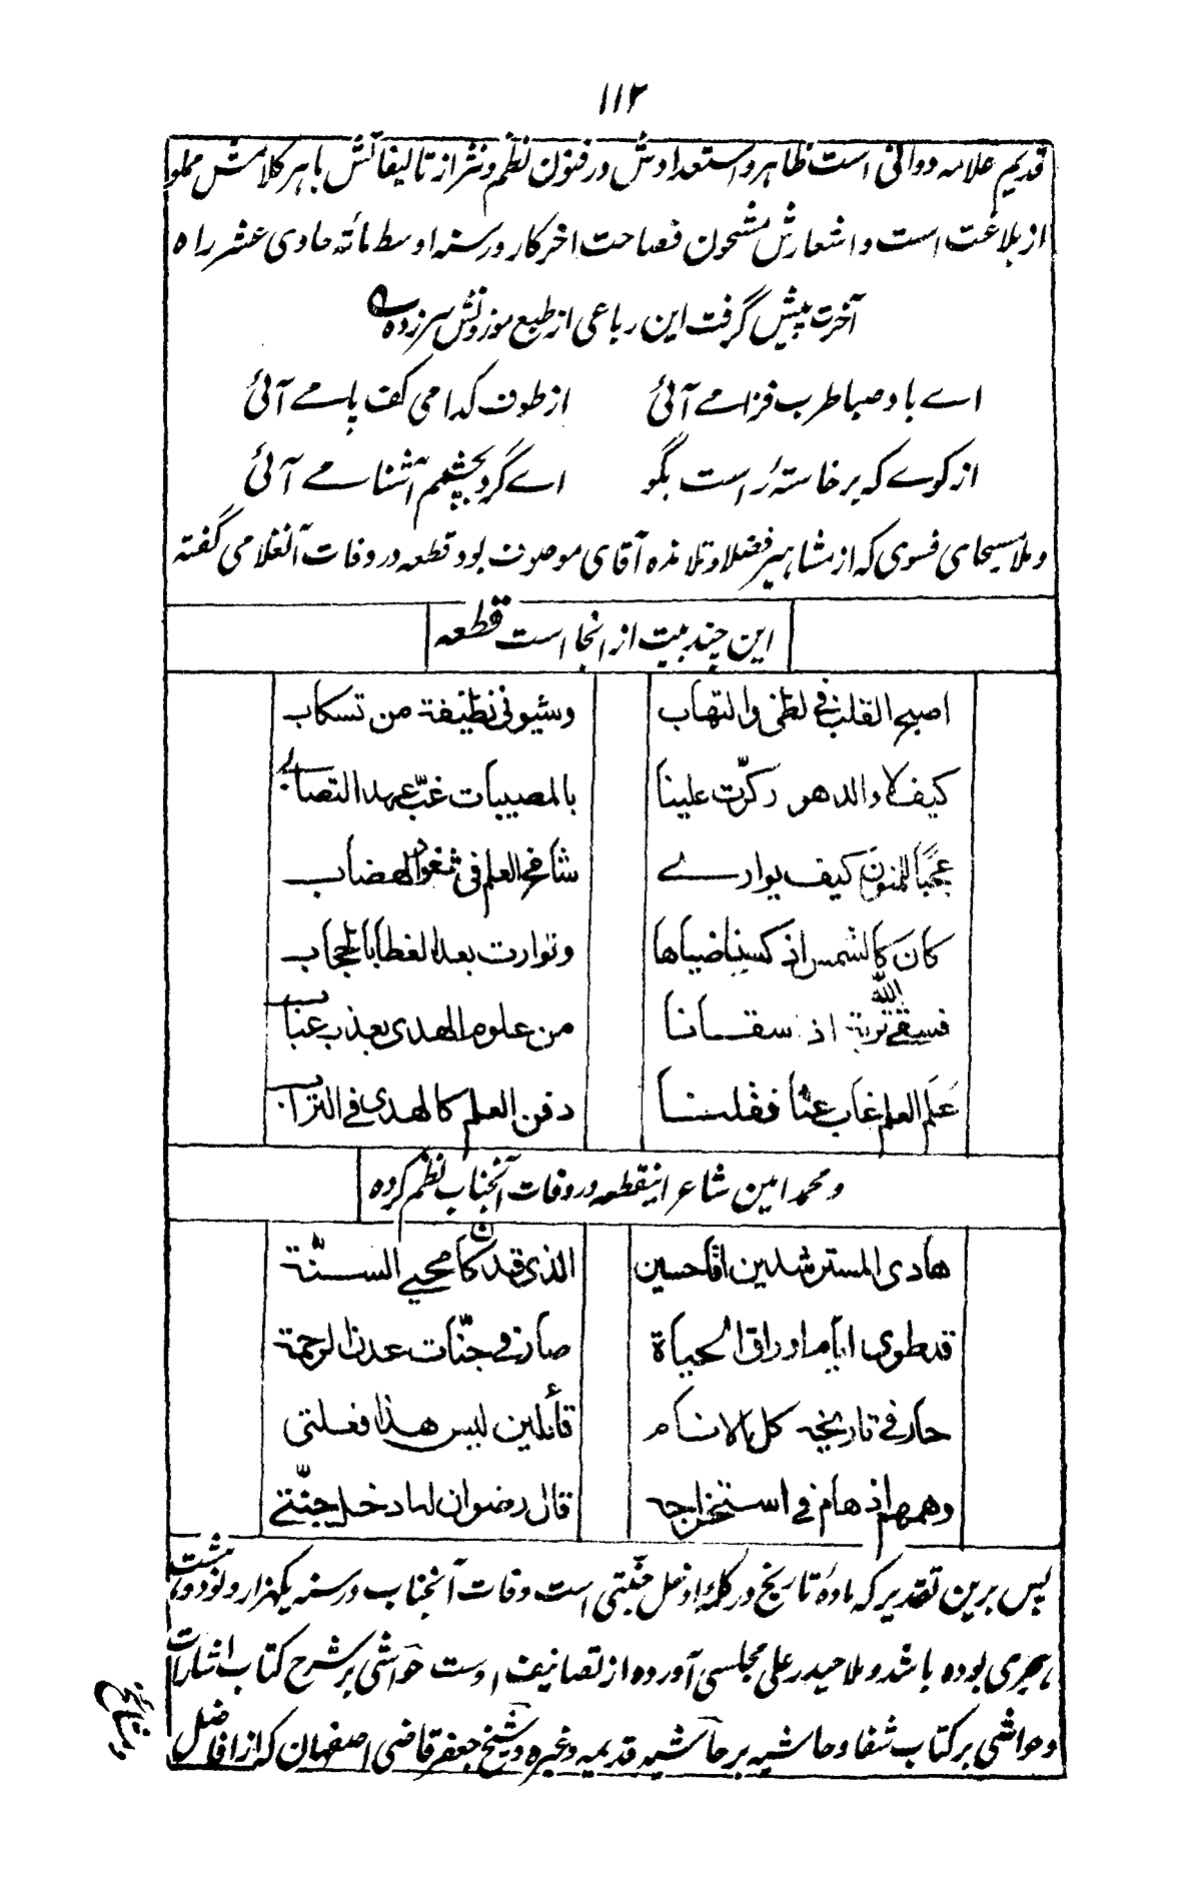 ۱۱۲
قدیم علامه دوانی است ظاهر و استعدادش در فنون نظم و نثر از تالیفاتش باهر کلامش مملو
از بلاغت است و اشعارش مشحون فصاحت اخر کار در سنه اوسط مائة حادی عشر راه
آخرت پیش گرفت این رباعی از طبع موزونش سرزده
اے باد صبا طرب فزا مے آئی از طوف کدامی کف پا مے آئی
از کوے که برخاستۂ راست بگو اے گرد بچشمم آشنا مے آئی
و ملا مسیحای فسوی که از مشاهیر فضلا و تلامذه آقای موصوف بود قطعه در وفات آنعلامی گفته
این چند بیت از انجا است قطعه
اصبح القلب فے لظی والتهاب وشیونی نطیفة من تسکاب
کیف لا والدهور کرّت علینا بالمصیبات غبّ عهد التصابی
عجبًا للمنون کیف یوارے شامخ العلم فی الهضاب
کان کالشمس اذ کسینا ضیاها وتوارت بعد الغطا بالحجاب
فسقے الله تربة اذ سقانا من علوم الهدی بعذب عباب
عَلَم العلم غاب عنّا فقلنا دفن العلم کالهدی فے التراب
و محمد امین شاعر اینقطعه در وفات آنجناب نظم کرده
هادی المسترشدین اقا حسین الذی قد کان محیی السنّة
قد طوی ایام اوراق الحیاة صار فے جنّات عدن الرحمة
حار فے تاریخه کل الانام قائلین لیس هذا فعلتی
وهمهم اذ هام فے استخراجه قال رضوان لها دخل جنّتے
پس برین تقدیر که مادۂ تاریخ در کلمۂ ادخل جنّتی است وفات آنجناب در سنه یکهزار و نود و هشت
هجری بوده باشد و ملا حیدر علی مجلسی آورده از تصانیف اوست حواشی بر شرح کتاب اشارات
و حواشی بر کتاب شفا و حاشیه بر حاشیه قدیمه و غیره و شیخ جعفر قاضی اصفهان که از افاضل